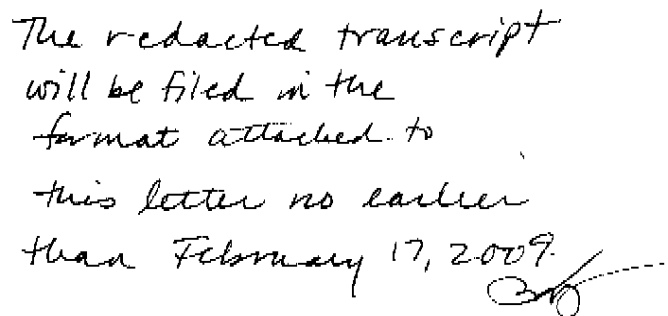 The redacted transcript
will be filed in the
format attached to
this letter no earlier
than February 17, 2009.